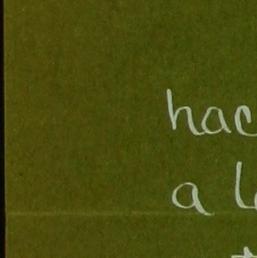 hac
a l